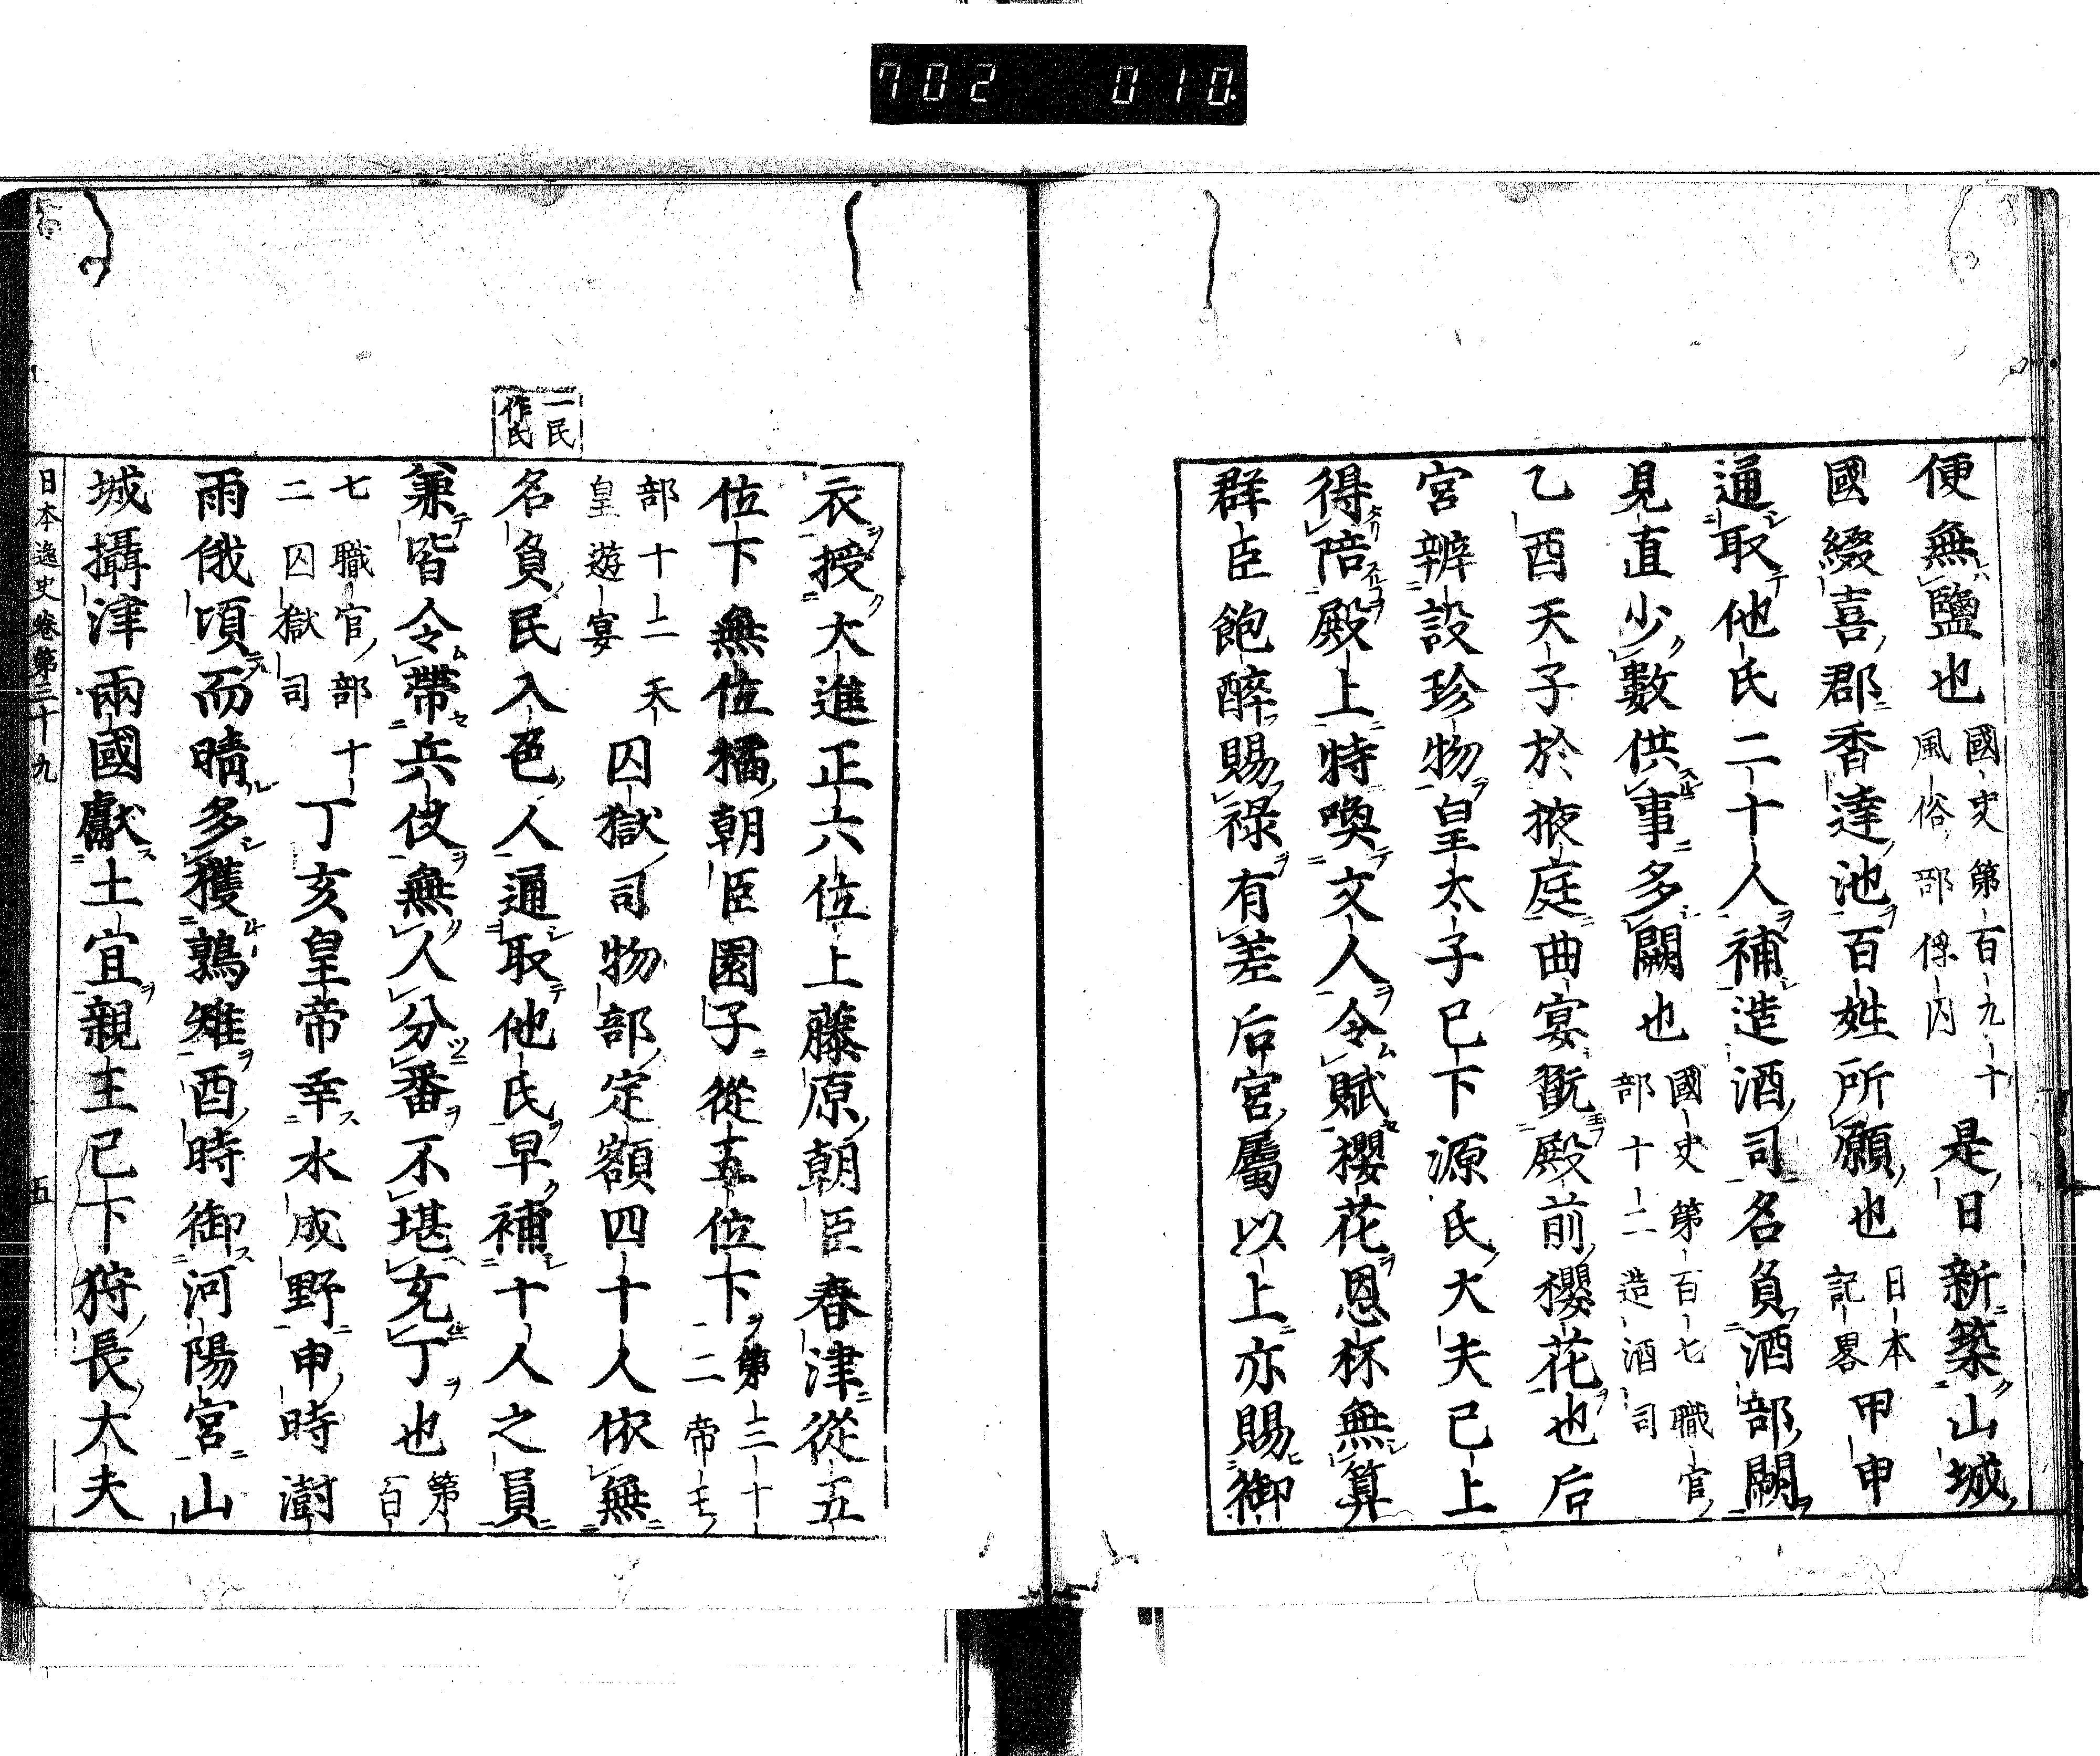 702 010
便無鹽也國史第百九十風俗部俘囚是日新築山城
國綴喜郡香達池百姓所願也日本記畧甲申
通取他氏二十人補造酒司名負酒部闕
見直少數供事多闕也國史第百七職官部十二造酒司
乙酉天子於掖庭曲宴翫殿前櫻花也后
宮辨設珍物皇太子已下源氏大夫已上
得陪殿上特喚文人令賦櫻花恩杯無算
群臣飽醉賜祿有差后宮屬以上亦賜御
一民作氏
衣授大進正六位上藤原朝臣春津從五
位下無位橘朝臣園子從五位下第三十二帝王
部十二天皇遊宴囚獄司物部定額四十人依無
名負民入色人通取他氏早補十人之員
兼皆令帶兵仗無人分番不堪充丁也第百
七職官部十二囚獄司丁亥皇帝幸水成野申時澍
雨俄頃而晴多獲鶉雉酉時御河陽宮山
城攝津兩國獻土宜親王已下狩長大夫
日本逸史卷第三十九 五